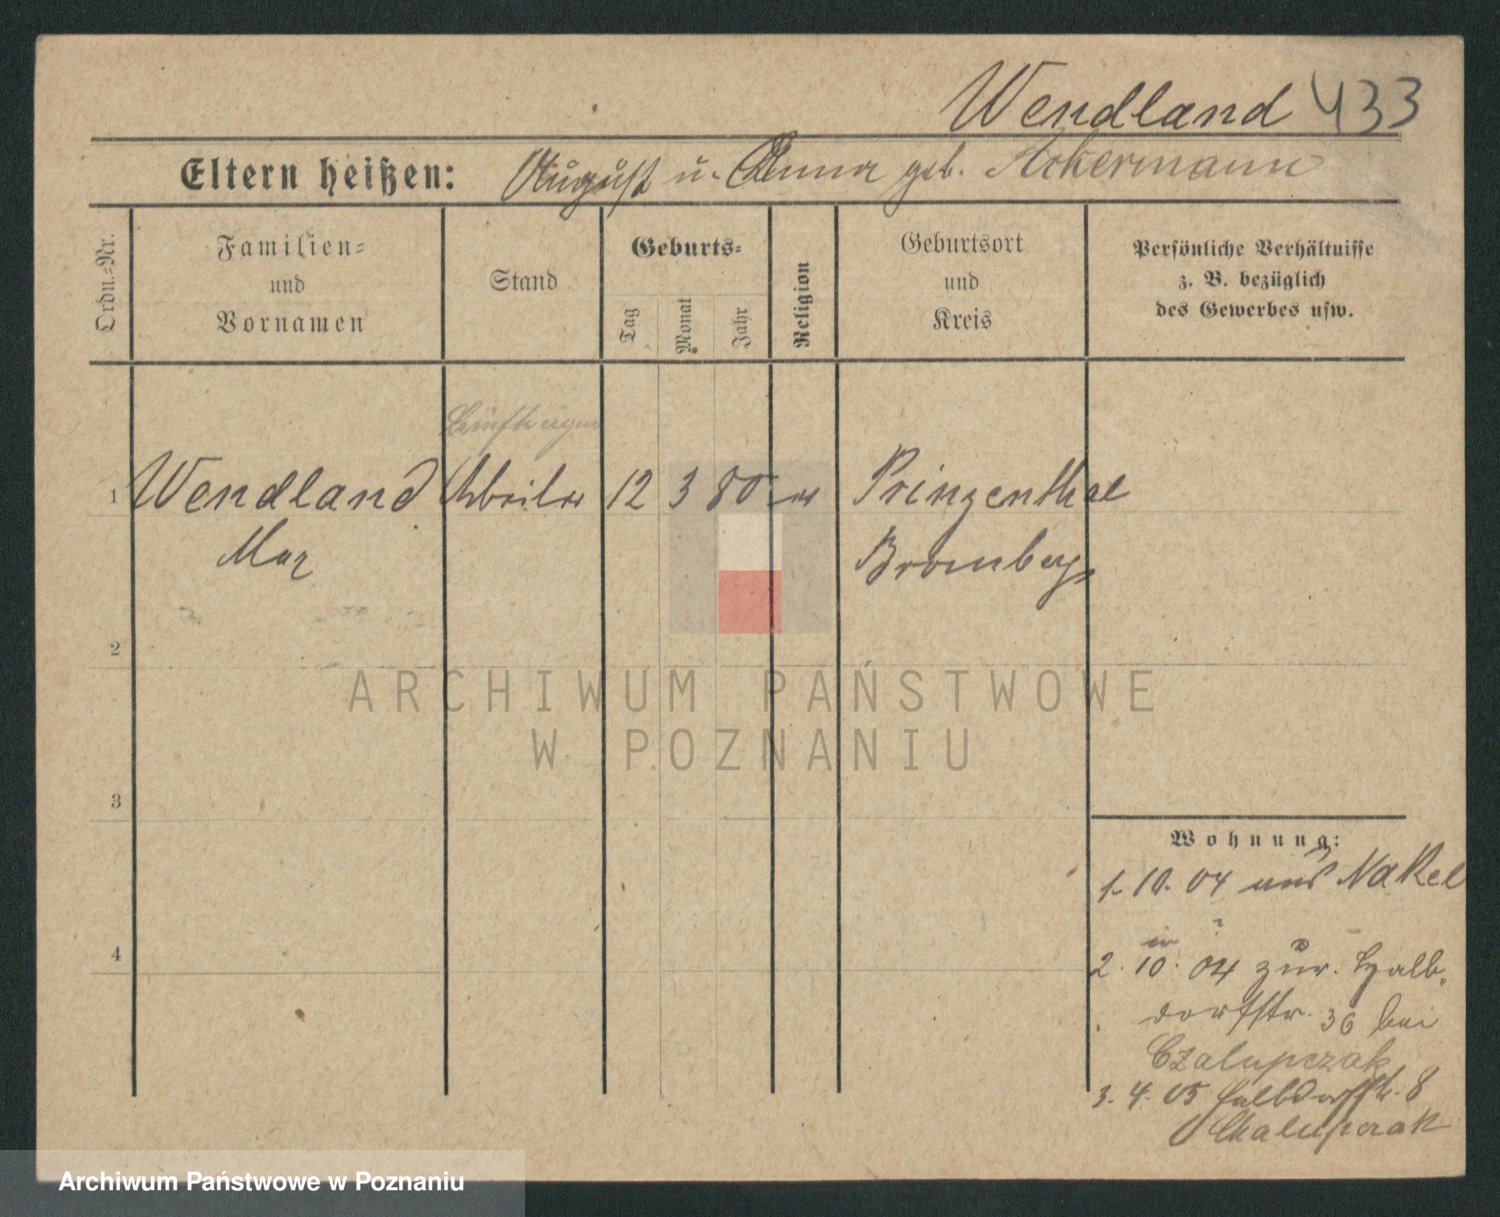 Wendland 433
Eltern heißen: August u. Anna geb. Ackermann
Ordn.-Nr.
Familien-
und
Vornamen
Stand
Geburts-
Tag
Monat
Jahr
Religion
Geburtsort
und
Kreis
Persönliche Verhältnisse
z. B. bezüglich
des Gewerbes usw.
1 Wendland Arbeiter 12 3 80 ev Prinzenthal
Max Bromberg
2
3
4
ARCHIWUM PAŃSTWOWE
W POZNANIU
Wohnung:
1. 10. 04 aus Nakel
in
2. 10. 04 zur. Halb-
dorfstr. 36 bei
Czalupczak
3. 4. 05 Halbdorfstr. 8
Chalupczak
Archiwum Państwowe w Poznaniu